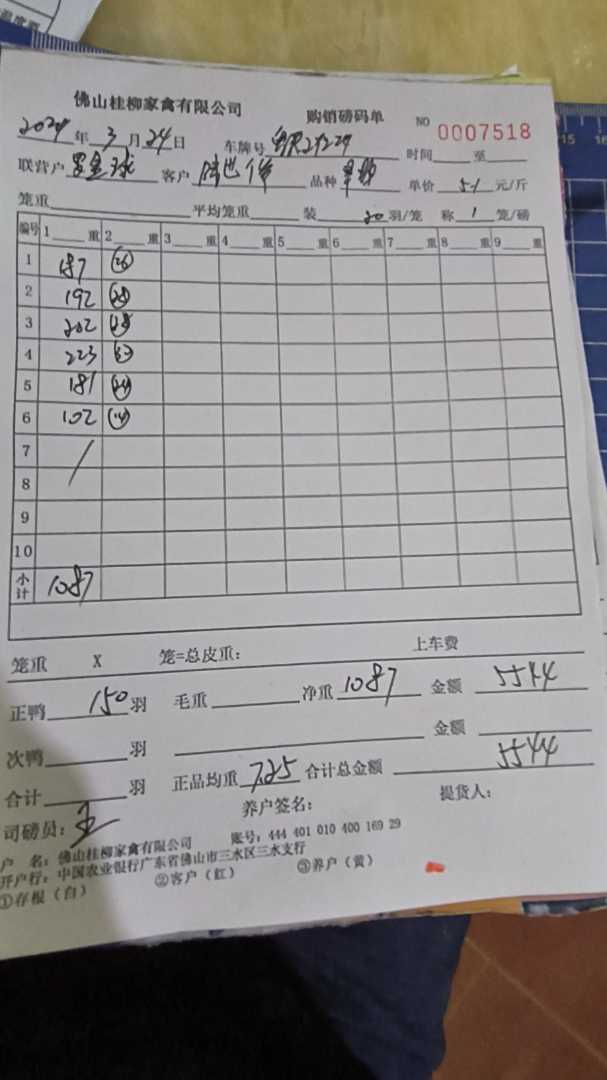 佛山桂柳家禽有限公司 购销磅码单 NO 0007518
2024年3月24日 车牌号 时间 至
联营户 客户 品种 单价 51 元/斤
笼重 平均笼重 装 20 羽/笼 称 1 笼/磅
编号 1 重 2 重 3 重 4 重 5 重 6 重 7 重 8 重 9 重
1 187 26
2 192
3 202 28
4 223
5 181 24
6 102 14
7
8
9
10
小计 1087
笼重 X 笼=总皮重: 上车费
正鸭 150 羽 毛重 净重 1087 金额 5544
次鸭 羽 金额
合计 羽 正品均重 7.25 合计总金额 5544
司磅员: 王 养户签名: 提货人:
户 名: 佛山桂柳家禽有限公司 账号: 444 401 010 400 169 29
开户行: 中国农业银行广东省佛山市三水区三水支行
①存根(白) ②客户(红) ③养户(黄)
15 16